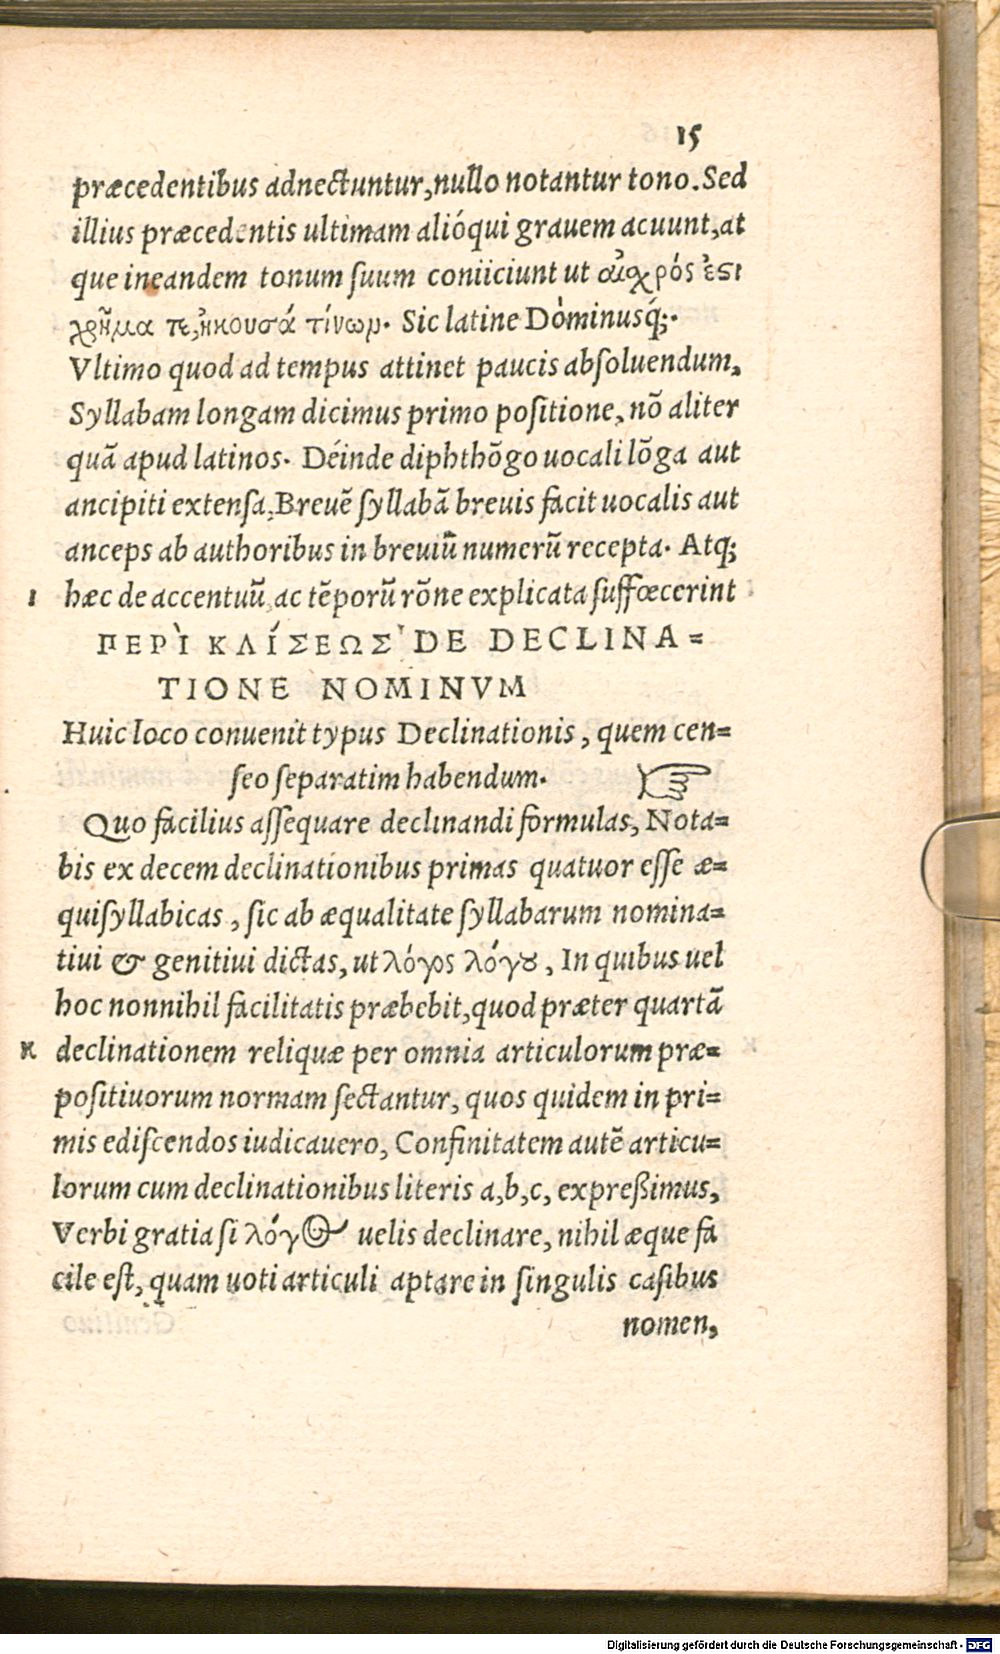 15
præcedentibus adnectuntur, nullo notantur tono. Sed
illius præcedentis ultimam alióqui grauem acuunt, at
que ineandem tonum suum coniiciunt ut αἰσχρός ἐστι
χρῆμα τε, ἠκουσά τίνων. Sic latine Dòminusq́;.
Vltimo quod ad tempus attinet paucis absoluendum.
Syllabam longam dicimus primo positione, nō aliter
quā apud latinos. Déinde diphthōgo uocali lōga aut
ancipiti extensa. Breuē syllabā breuis facit uocalis aut
anceps ab authoribus in breuiū numerū recepta. Atq;
I hæc de accentuū, ac tēporū rōne explicata suffœcerint
ΠΕΡῚ ΚΛΊΣΕΩΣ DE DECLINA=
TIONE NOMINVM
Huic loco conuenit typus Declinationis, quem cen=
seo separatim habendum. ☞
Quo facilius assequare declinandi formulas, Nota=
bis ex decem declinationibus primas quatuor esse æ=
quisyllabicas, sic ab æqualitate syllabarum nomina=
tiui & genitiui dictas, ut λόγος λόγȣ, In quibus uel
hoc nonnihil facilitatis præbebit, quod præter quartā
K declinationem reliquæ per omnia articulorum præ=
positiuorum normam sectantur, quos quidem in pri=
mis ediscendos iudicauero, Confinitatem autē articu=
lorum cum declinationibus literis a, b, c, expreßimus,
Verbi gratia si λόγος uelis declinare, nihil æque fa
cile est, quam uoti articuli aptare in singulis casibus
nomen,
Digitalisierung gefördert durch die Deutsche Forschungsgemeinschaft - DFG